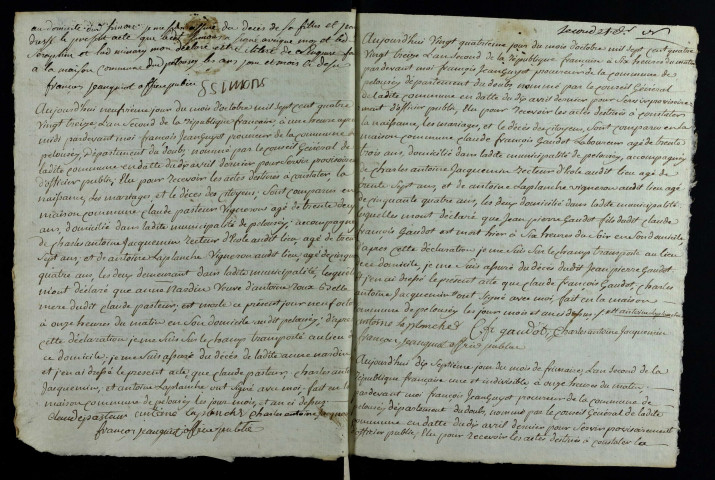 a la maison commune dud pelousey les ans jour et mois ci dessus
françois jeanguiot officier public
Aujourdhuy neufvieme jour du mois doctobre mil sept cent quatre
Vingt treize Lan Second de la République francaise, à une heure apres
midi pardevant moi françois JeanGuyot procureur de la commune de
pelousey, département du doubs, nommé par le conseil Général de
ladite commune en datte du dix avril dernier pour Servir provisoirement
d'officier public, Elu pour recevoir les actes destinés à constater, la
naissance, Les mariages, et le décès des citoyens. Sont comparus en la
maison commune claude pasteur Vigneron agé de trente
ans, domicilié dans ladite municipalité de pelousey, accompagné
de Charles antoine Jacquemin Recteur d'Ecole audit lieu agé de trente
Sept ans, et de antoine Laplanche Vigneron audit lieu agé de cinquante
quatre ans, les deux demeurant dans ladite municipalité, lesquels
m'ont déclaré que anne Nardin Veuve d'antoine Roux Belle
mere dudit claude pasteur, est morte ce présent jour neuf octobre
à onze heures du matin en Son domicile audit pelousey, d'après
cette déclaration je me Suis Sur le champ transporté au lieu de
ce domicile, je me Suis assuré du décès de ladite anne nardin
et j'en ai dressé le présent acte que claude pasteur, charles antoine
Jacquemin, et antoine Laplanche ont Signé avec moi. fait en la
maison commune de pelousey les jour, mois, et an ci dessus
claude pasteur antoine laplanche Charles antoine Jacquemin
françois jeanguiot officier public
Second
Aujourdhuy Vingt quatrieme jour du mois d'octobre mil sept cent quatre
Vingt treize Lan Second de la République francaise à Six heures du matin
pardevant moi françois JeanGuyot procureur de la commune de
pelousey département du doubs, nommé par le conseil Général
de ladite commune en datte du dix avril dernier pour Servir provisoire-
ment d'officier public, Elu pour recevoir les actes destinés à constater
la naissance, les mariages, et le décès des citoyens, Sont comparus en la
maison commune claude françois Gaudot Laboureur agé de trente
trois ans, domicilié dans ladite municipalité de pelousey, accompagné
de Charles antoine Jacquemin Recteur d'Ecole audit lieu agé de
trente Sept ans, et de antoine Laplanche vigneron audit lieu agé
de cinquante quatre ans, les deux domiciliés dans ladite municipalité
lesquelles m'ont déclaré que Jean pierre Gaudot fils dudit claude
françois Gaudot est mort hier à Six heures du Soir en Son domicile
après cette déclaration je me Suis Sur le champ transporté au lieu
de ce domicile, je me Suis assuré du décès dudit Jean pierre Gaudot
et j'en ai dressé le présent acte que claude françois Gaudot, Charles
antoine Jacquemin ont Signé avec moi fait en la maison
commune de pelousey les jour, mois et an ci dessus et antoine laplanche
antoine laplanche Cf gaudot, Charles antoine Jacquemin
françois jeanguiot officier public
Aujourdhuy dix Septième jour du mois de frimaire, Lan Second de la
République française une et indivisible à onze heures du matin,
pardevant moi françois JeanGuyot procureur de la commune de
pelousey département du doubs, nommé par le conseil Général de ladite
commune en datte du dix avril dernier pour Servir provisoirement
d'officier public, Elu pour recevoir les actes destinés à constater les